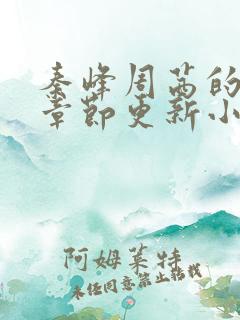 秦峰周茜的
章节更新小
阿姆莱特
未经同意禁止转载